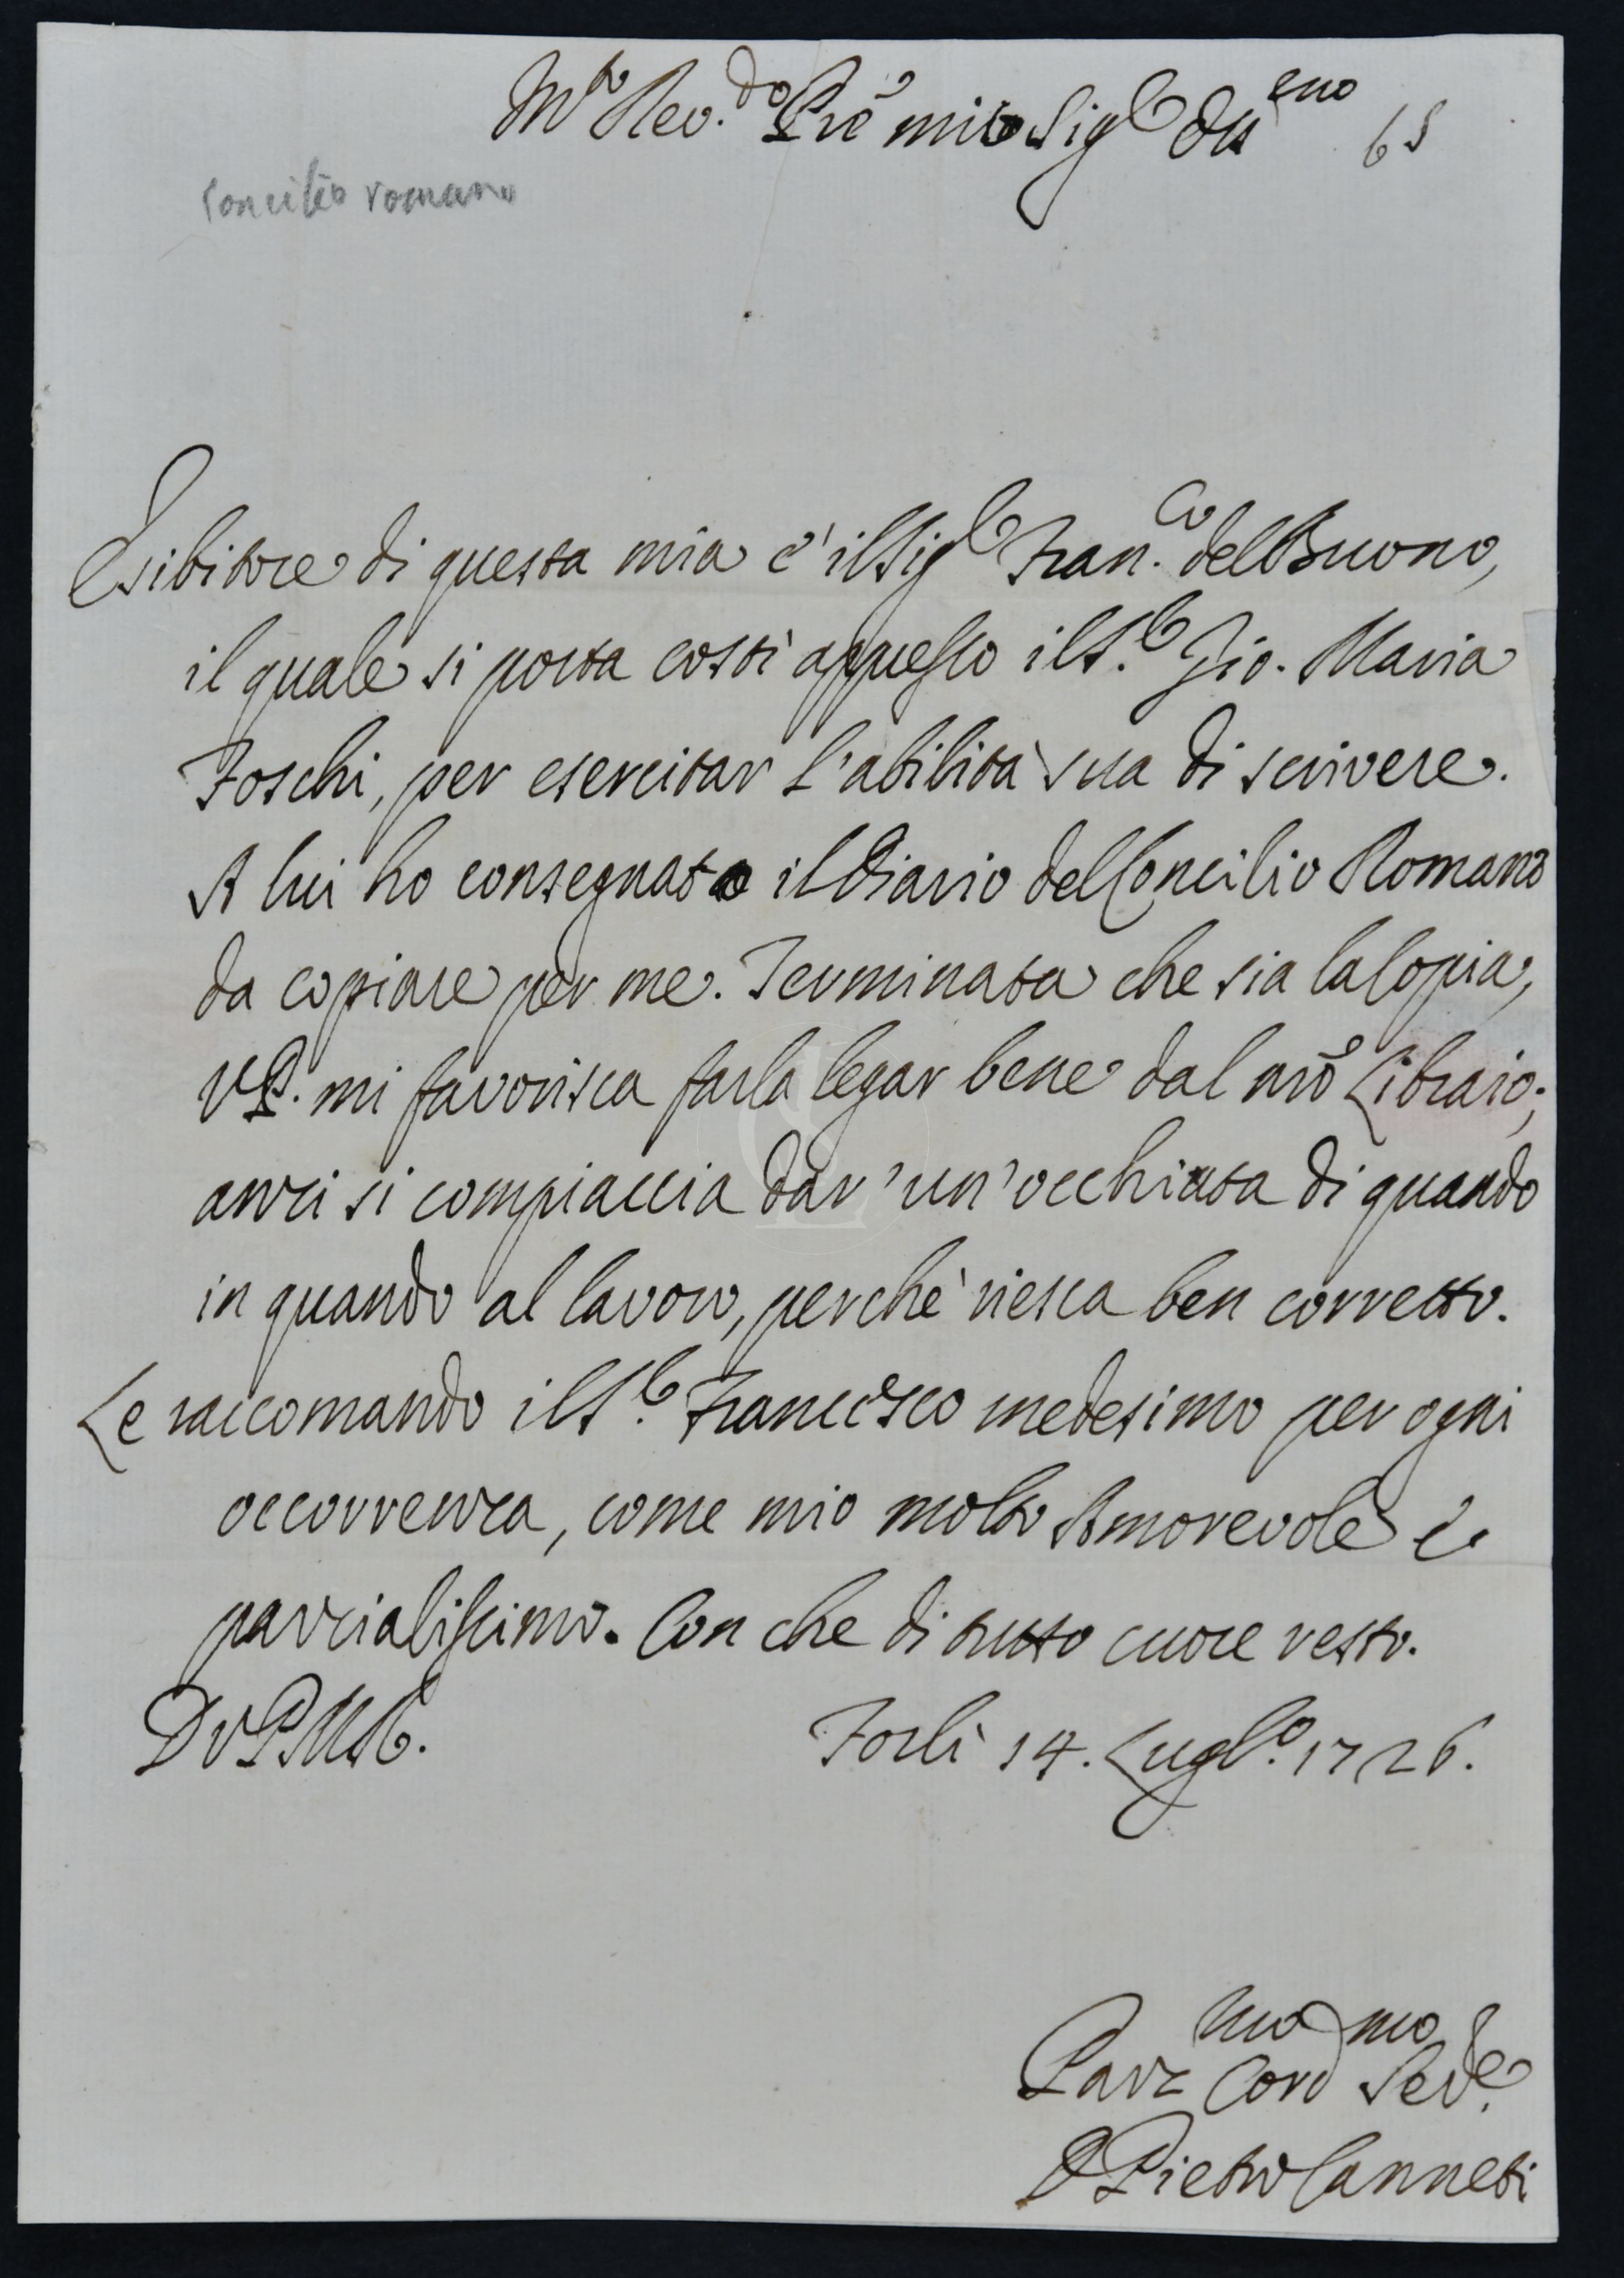 M.to Rev.do Prē mio Sig.e Oss.mo 65
concilio romano
Esibitore di questa mia è il Sig.e Fran.co del Buono,
il quale si porta costì appresso il S.e Gio. Maria
Foschi, per esercitar l'abilità sua di scrivere.
A lui ho consegnato il Diario del Concilio Romano
da copiare per me. Terminata che sia la Copia,
V.P. mi favorisca farla legar bene dal nrõ Libraio;
anzi si compiaccia dar'un'occhiata di quando
in quando al lavoro, perchè riesca ben corretto.
Le raccomando il S.e Francesco medesimo per ogni
occorrenza, come mio molto Amorevole e
parzialissimo. Con che di tutto cuore resto.
D V P M
Forlì 14. Lugl.o 1726.
Parz.mo Cord.mo Ser.e
D Pietro Canneti